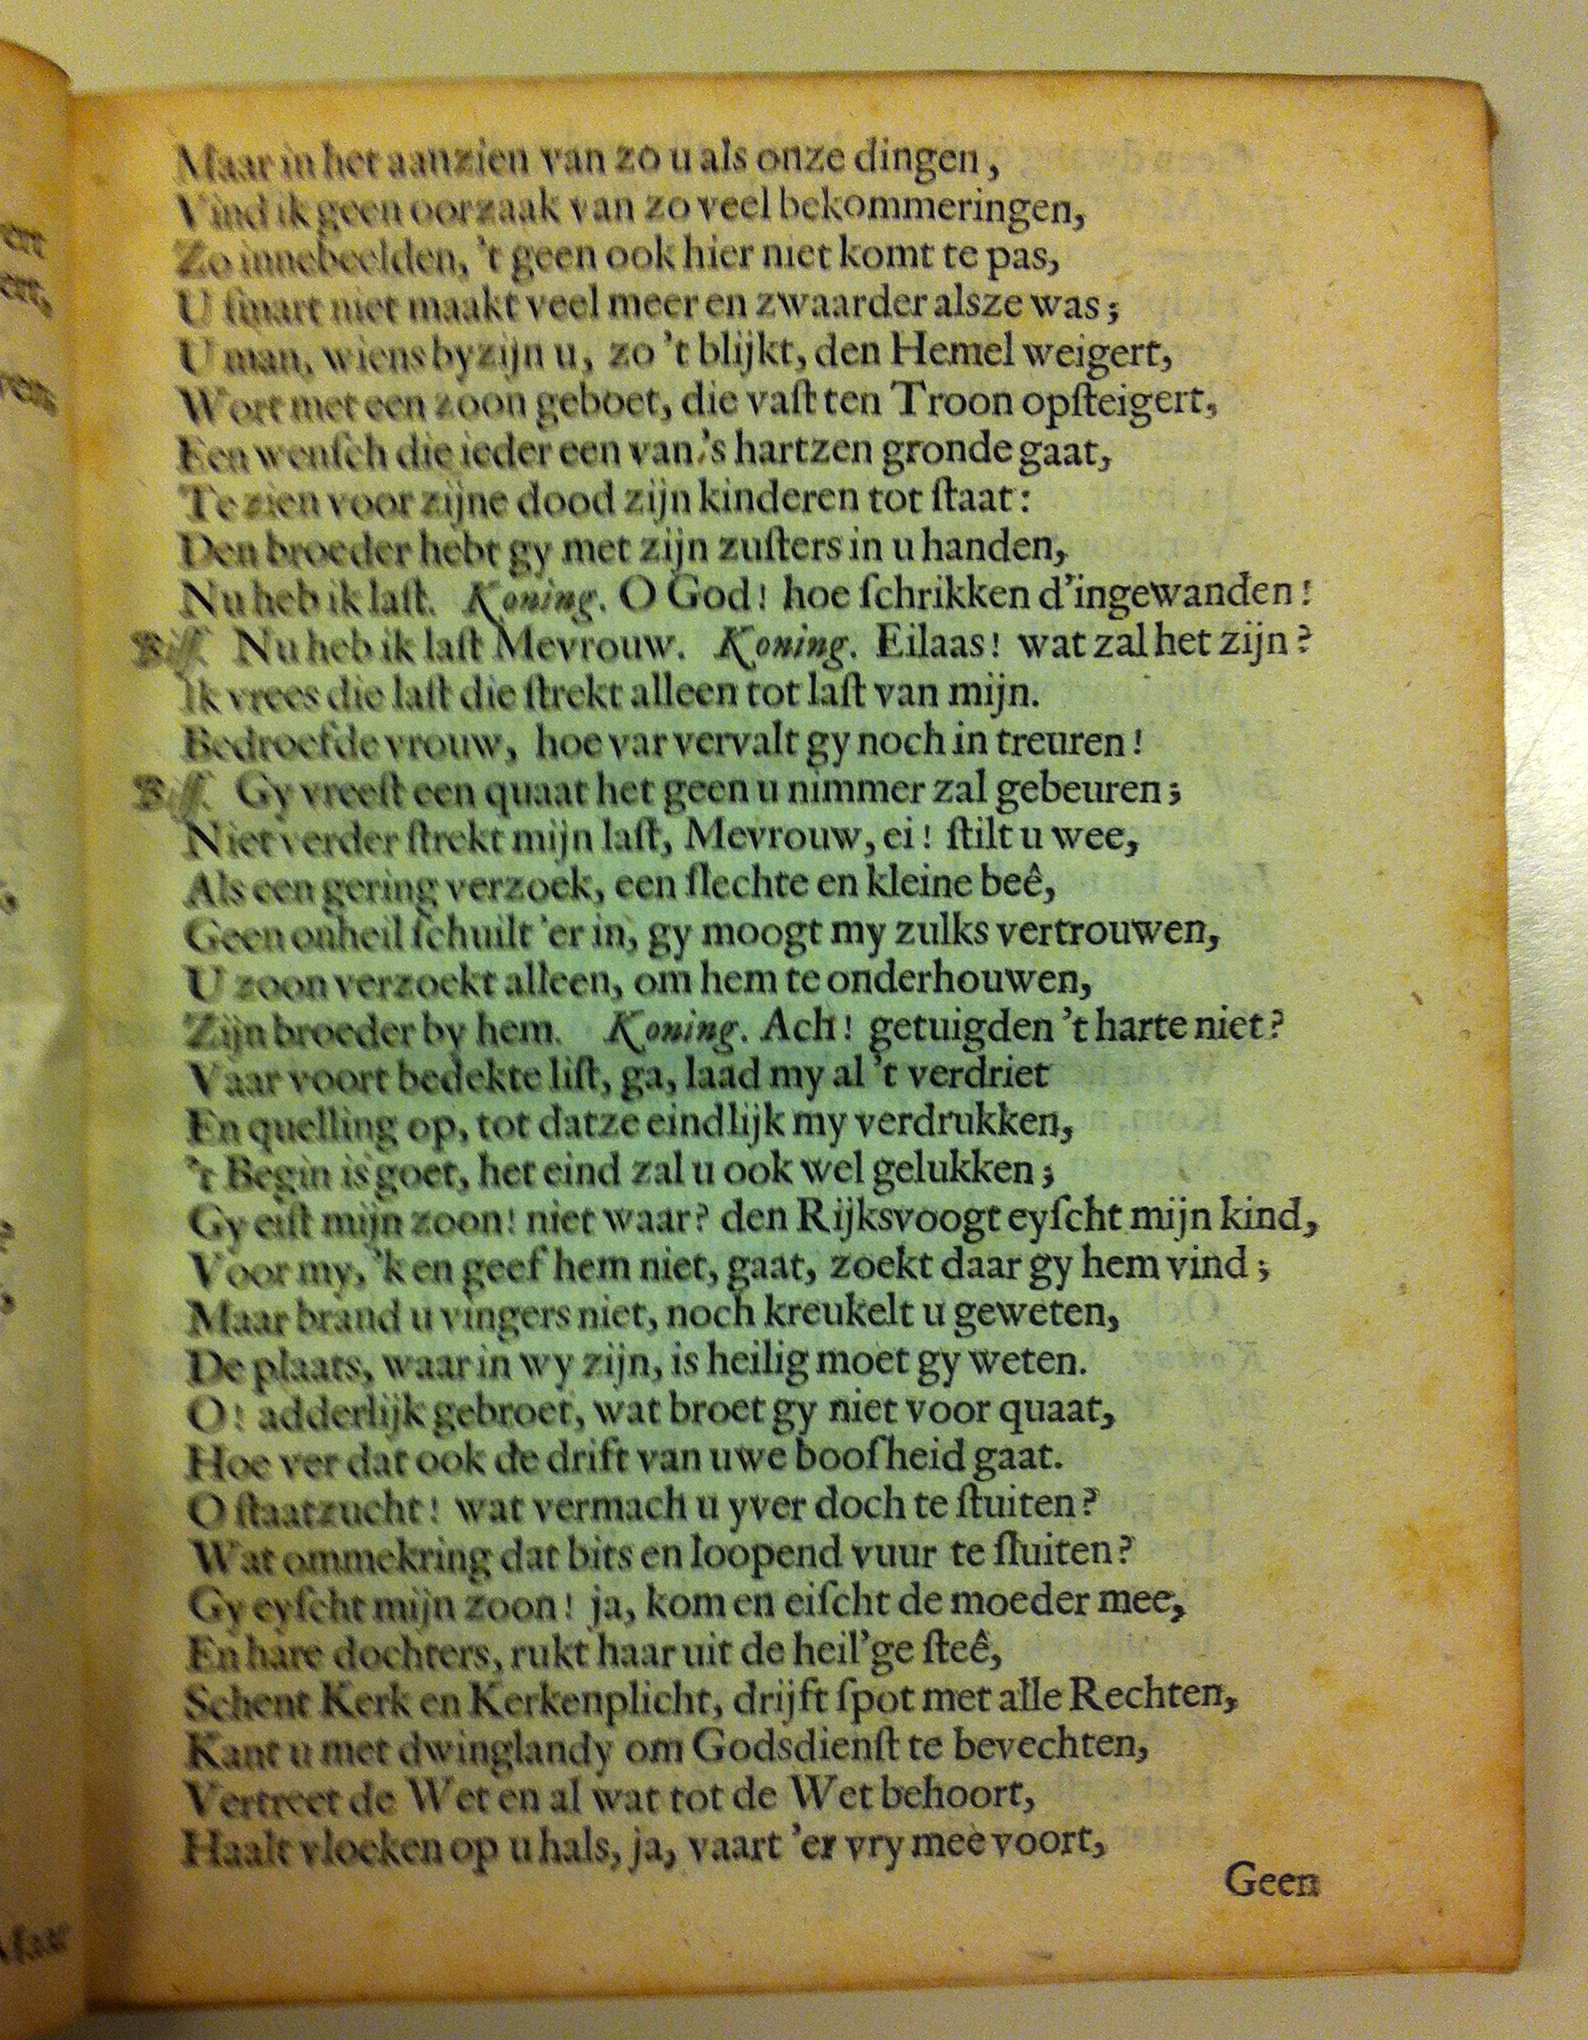 Maar in het aanzien van zo u als onze dingen,
Vind ik geen oorzaak van zo veel bekommeringen,
Zo innebeelden, 't geen ook hier niet komt te pas,
U ſmart niet maakt veel meer en zwaarder alsze was;
U man, wiens byzijn u, zo 't blijkt, den Hemel weigert,
Wort met een zoon geboet, die vaſt ten Troon opſteigert,
Een wenſch die ieder een van 's hartzen gronde gaat,
Te zien voor zijne dood zijn kinderen tot ſtaat:
Den broeder hebt gy met zijn zuſters in u handen,
Nu heb ik laſt. Koning. O God! hoe ſchrikken d'ingewanden!
Biſſ. Nu heb ik laſt Mevrouw. Koning. Eilaas! wat zal het zijn?
Ik vrees die laſt die ſtrekt alleen tot laſt van mijn.
Bedroefde vrouw, hoe var vervalt gy noch in treuren!
Biſſ. Gy vreeſt een quaat het geen u nimmer zal gebeuren;
Niet verder ſtrekt mijn laſt, Mevrouw, ei! ſtilt u wee,
Als een gering verzoek, een ſlechte en kleine beê,
Geen onheil ſchuilt 'er in, gy moogt my zulks vertrouwen,
U zoon verzoekt alleen, om hem te onderhouwen,
Zijn broeder by hem. Koning. Ach! getuigden 't harte niet?
Vaar voort bedekte liſt, ga, laad my al 't verdriet
En quelling op, tot datze eindlijk my verdrukken,
't Begin is goet, het eind zal u ook wel gelukken;
Gy eiſt mijn zoon! niet waar? den Rijksvoogt eyſcht mijn kind,
Voor my, 'k en geef hem niet, gaat, zoekt daar gy hem vind;
Maar brand u vingers niet, noch kreukelt u geweten,
De plaats, waar in wy zijn, is heilig moet gy weten.
O! adderlijk gebroet, wat broet gy niet voor quaat,
Hoe ver dat ook de drift van uwe booſheid gaat.
O ſtaatzucht! wat vermach u yver doch te ſtuiten?
Wat ommekring dat bits en loopend vuur te ſluiten?
Gy eyſcht mijn zoon! ja, kom en eiſcht de moeder mee,
En hare dochters, rukt haar uit de heil'ge ſteê,
Schent Kerk en Kerkenplicht, drijft ſpot met alle Rechten,
Kant u met dwinglandy om Godsdienſt te bevechten,
Vertreet de Wet en al wat tot de Wet behoort,
Haalt vloeken op u hals, ja, vaart 'er vry mee voort,
Geen